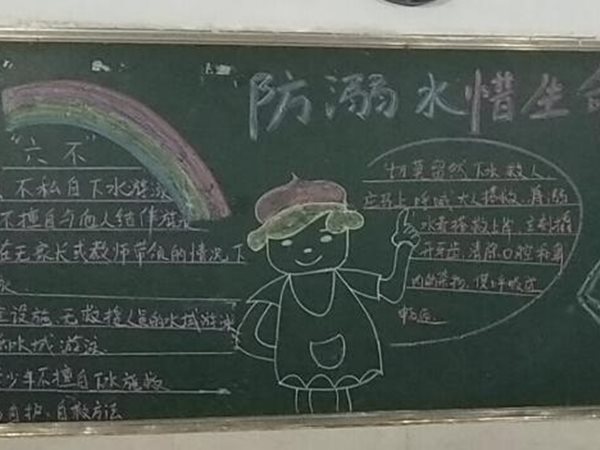 防溺水惜生命
"六 不"
、不私自下水游泳
不擅自与他人结伴游泳
在无家长或教师带领的情况下
泳
设施、无救援人员的水域游泳
水域游泳
少年不擅自下水施救
自护、自救方法
切莫贸然下水救人
应马上呼喊大人援救，将溺
水者援救上岸，立刻撬
开牙齿，清除口腔和鼻
内的杂物，使呼吸道
畅通。